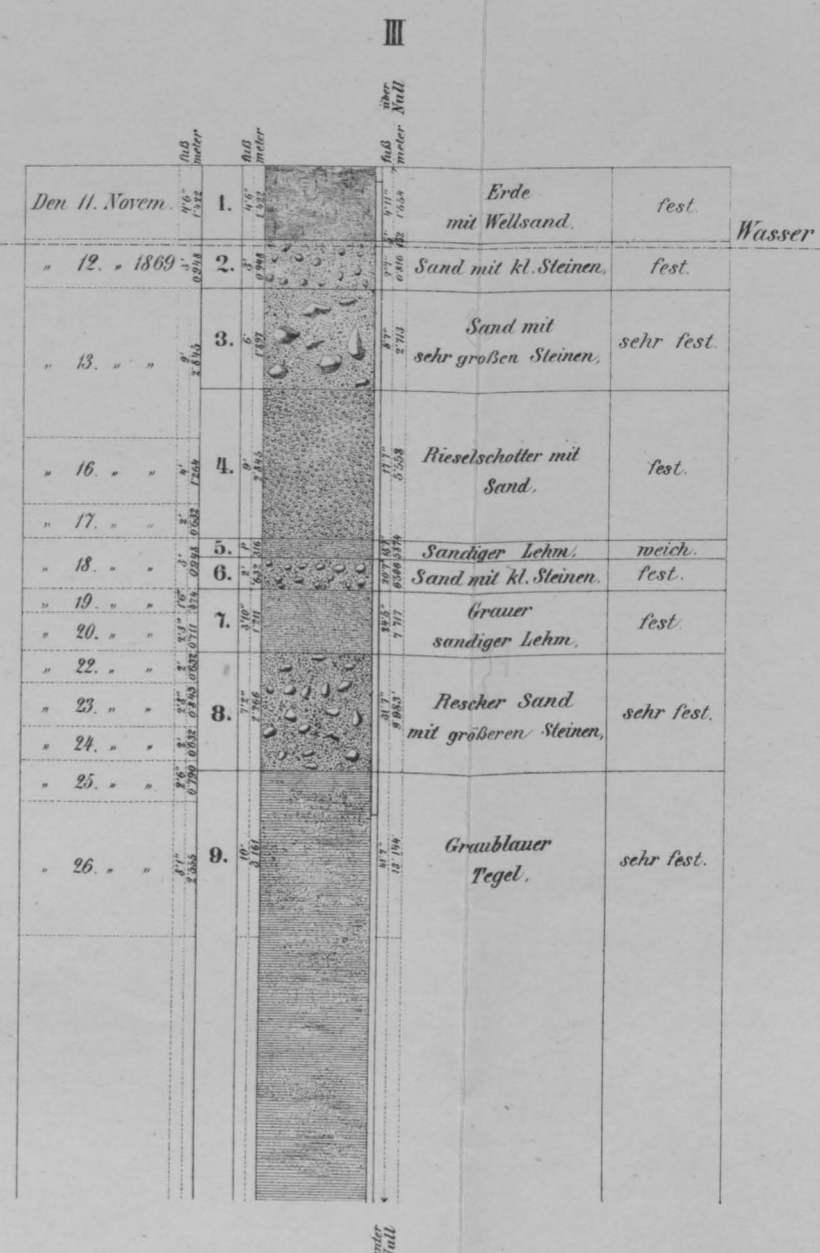 III
fuß meter
fuß meter
fuß meter
über Null
Den 11. Novem. 4'6" 1'422 1. 4'6" 1'422 4'11" 1'554 Erde
mit Wellsand. fest.
Wasser
„ 12. „ 1869 3' 0'948 2. 3' 0'948 2'7" 0'816 Sand mit kl. Steinen, fest.
3. 6' 1'897 8'7" 2'713 Sand mit
sehr großen Steinen, sehr fest.
„ 13. „ „ 9' 2'845
„ 16. „ „ 4' 1'264 4. 9' 2'845 17'7" 5'558 Rieselschotter mit
Sand, fest.
„ 17. „ „ 2' 0'632
5. 1' 316 Sandiger Lehm. weich.
„ 18. „ „ 3' 0'948 6. 2' 632 20'7" Sand mit kl. Steinen. fest.
„ 19. „ „ 1'6" 474
7. 24'5" 7'717 Grauer
sandiger Lehm, fest.
„ 20. „ „ 2'3" 0'711
„ 22. „ „ 2' 0'632
„ 23. „ „ 2'8" 0'843 8. 7'2" 31'7" Rescher Sand
mit größeren Steinen, sehr fest.
„ 24. „ „ 2' 0'632
„ 25. „ „ 2'6" 0'790
„ 26. „ „ 8'1" 2'555 9. 10' 3'161 41'7" 13'144 Graublauer
Tegel. sehr fest.
unter Null